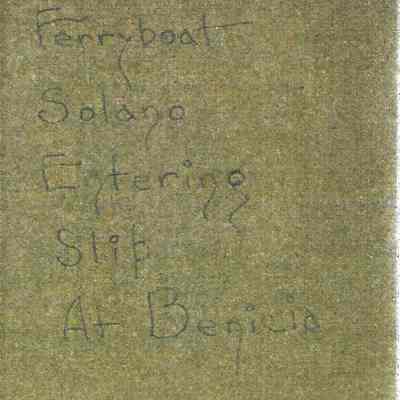 Ferryboat
Solano
Entering
Slip
At Benicia